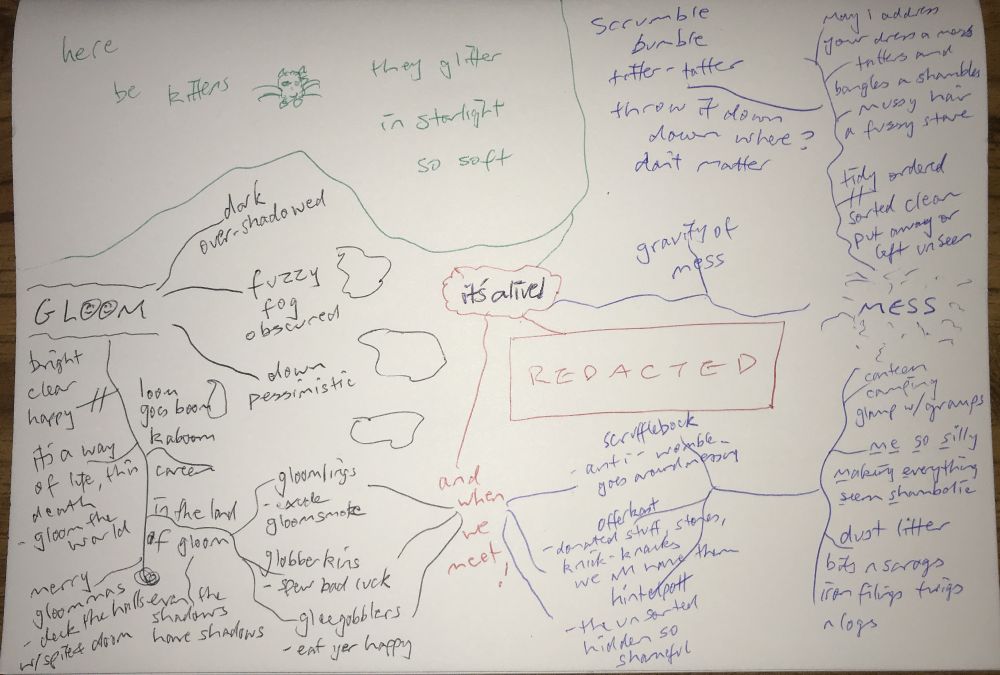 here
be kittens
they glitter
in starlight
so soft
Scrumble
bumble
titter-tatter
throw it down
down where?
don't matter
May I address
your dress a mess
tatters and
bangles a shambles
mussy hair
a fuzzy stare
tidy ordered
sorted clean
put away or
left unseen
gravity of
mess
MESS
it's alive!
REDACTED
dark
over-shadowed
GLOOM
fuzzy
fog
obscured
down
pessimistic
bright
clear
happy
loom
goes boom
kaboom
it's a way
of life, this
death
- gloom the
world
career
in the land
of gloom
merry
gloommas
- deck the halls
w/ spite & doom
even the
shadows
have shadows
gloomlings
- exude
gloomsmoke
globberkins
- spew bad luck
gleegobblers
- eat yer happy
and
when
we
meet!
scrufflebock
- anti-womble
goes around messing
offerkast
- donated stuff, stories,
knick-knacks
we all have them
hintelpott
- the unsorted
hidden so
shameful
canteen
camping
glamp w/ gramps
me so silly
making everything
seem shambolic
dust litter
bits n scrags
iron filings twigs
n logs